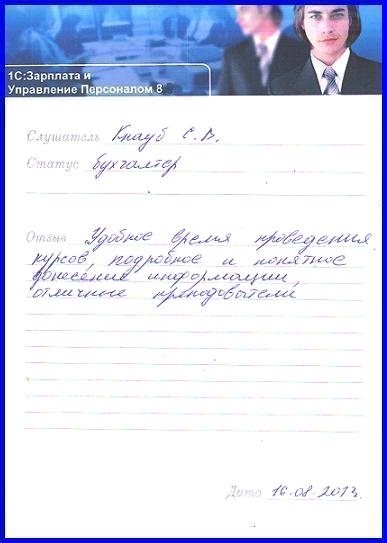 1С:Зарплата и
Управление Персоналом 8
Слушатель Кнауб С.В.
Статус бухгалтер
Отзыв Удобное время проведения
курсов, подробное и понятное
донесение информации,
отличные преподователи
Дата 16.08.2013.